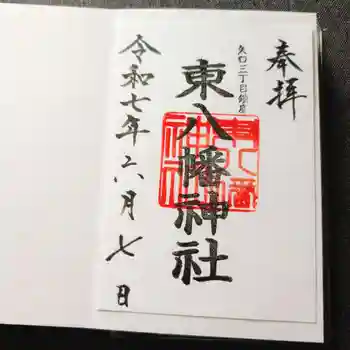 奉拝
矢口三丁目鎮座
東八幡神社
令和七年六月七日